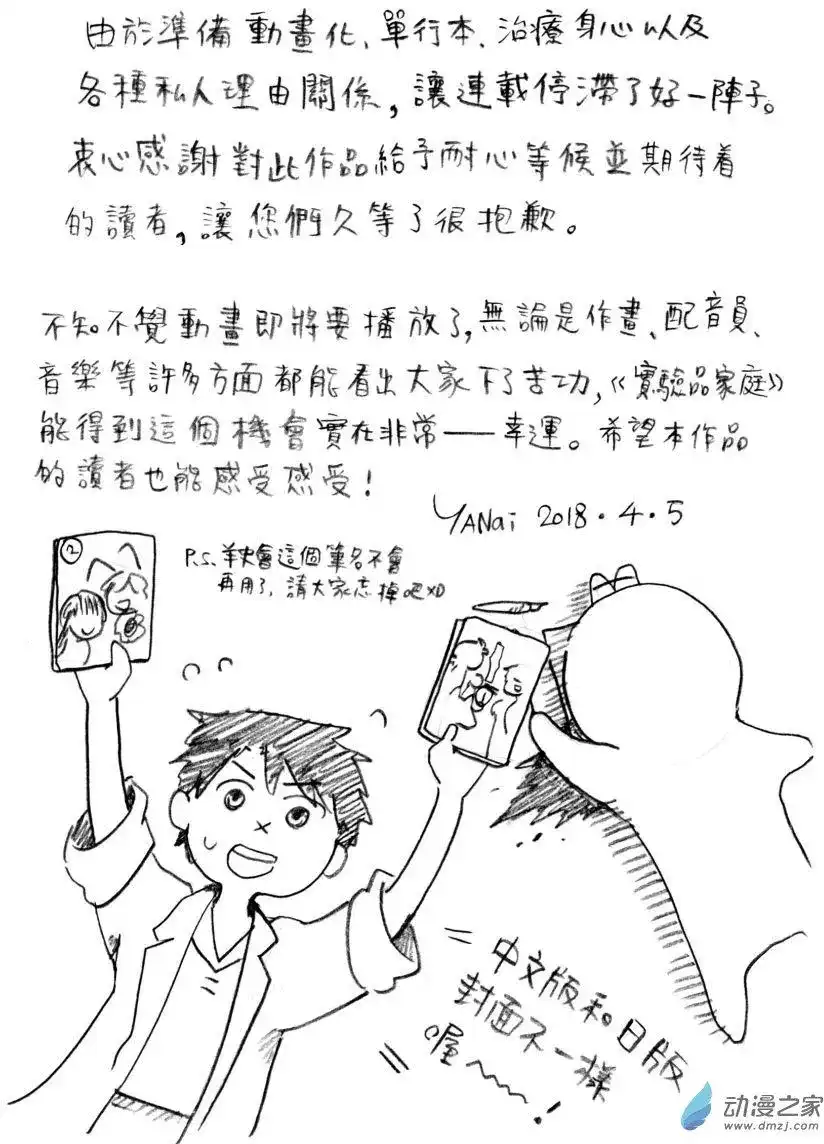 由於準備動畫化、單行本、治療身心以及
各種私人理由關係，讓連載停滯了好一陣子。
衷心感謝對此作品給予耐心等候並期待着
的讀者，讓您們久等了很抱歉。
不知不覺動畫即將要播放了，無論是作畫、配音員、
音樂等許多方面都能看出大家下了苦功，《實驗品家庭》
能得到這個機會實在非常——幸運。希望本作品
的讀者也能感受感受！
YANai 2018.4.5
P.S. 羊央會這個筆名不會
再用了，請大家忘掉吧XD
②
中文版和日版
封面不一樣
喔~~~！
动漫之家
www.dmzj.com